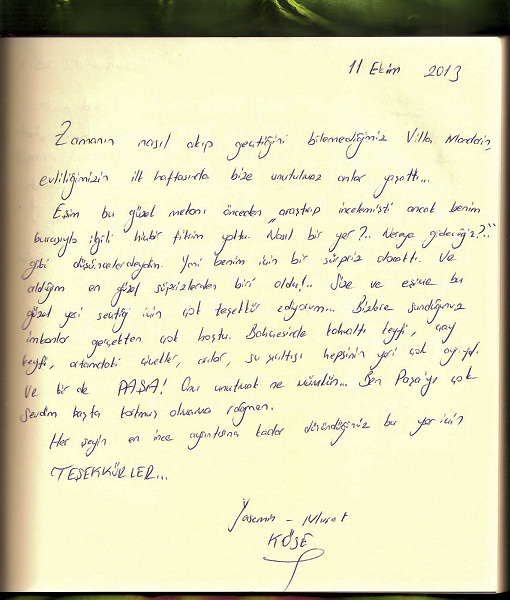 11 Ekim 2013
Zamanın nasıl akıp geçtiğini bilemediğimiz Villa Mandarin,
evliliğimizin ilk haftasında bize unutulmaz anlar yaşattı...
Eşim bu güzel mekanı önceden araştırıp incelemişti ancak benim
burasıyla ilgili hiçbir fikrim yoktu. "Nasıl bir yer?.. Nereye gideceğiz?.."
gibi düşüncelerdeydim. Yani benim için bir sürpriz olacaktı. Ve
aldığım en güzel sürprizlerden biri oldu!.. Size ve eşime bu
güzel yeri seçtiği için çok teşekkür ediyorum... Bizlere sunduğunuz
imkanlar gerçekten çok hoştu. Bahçesinde kahvaltı keyfi, çay
keyfi, ortamdaki çiçekler, arılar, su şırıltısı hepsinin yeri çok ayrıydı.
Ve bir de PAŞA! Onu unutmak ne mümkün... Ben Paşa'yı çok
sevdim başta korkmuş olmama rağmen.
Her şeyin en ince ayrıntısına kadar düşünüldüğü bu yer için
TEŞEKKÜRLER...
Yasemin - Murat
KÖSE